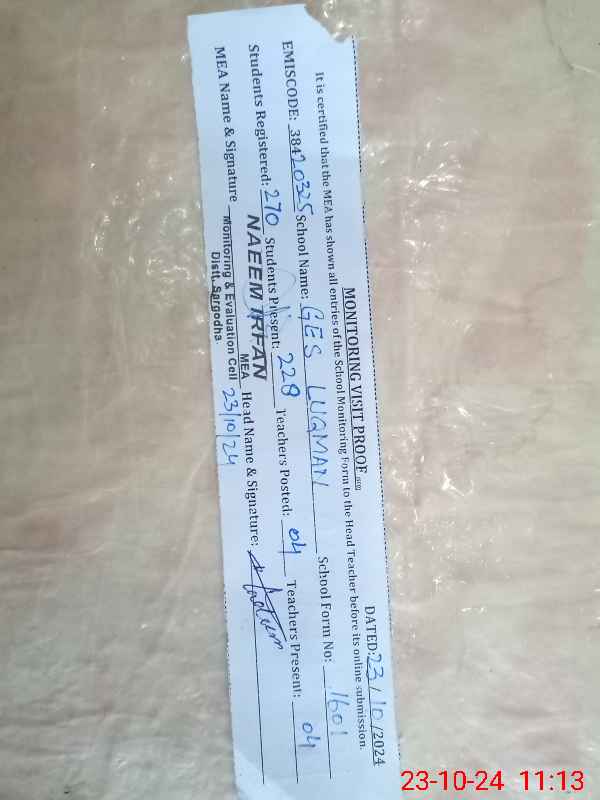 MONITORING VISIT PROOF
DATED: 23/10/2024
It is certified that the MEA has shown all entries of the School Monitoring Form to the Head Teacher before its online submission.
EMISCODE: 38420325 School Name: GES LUQMAN School Form No: 1601
Students Registered: 270 Students Present: 228 Teachers Posted: 04 Teachers Present: 04
MEA Name & Signature Head Name & Signature:
NAEEM IRFAN
MEA
Monitoring & Evaluation Cell
Distt. Sargodha
23/10/24
23-10-24 11:13